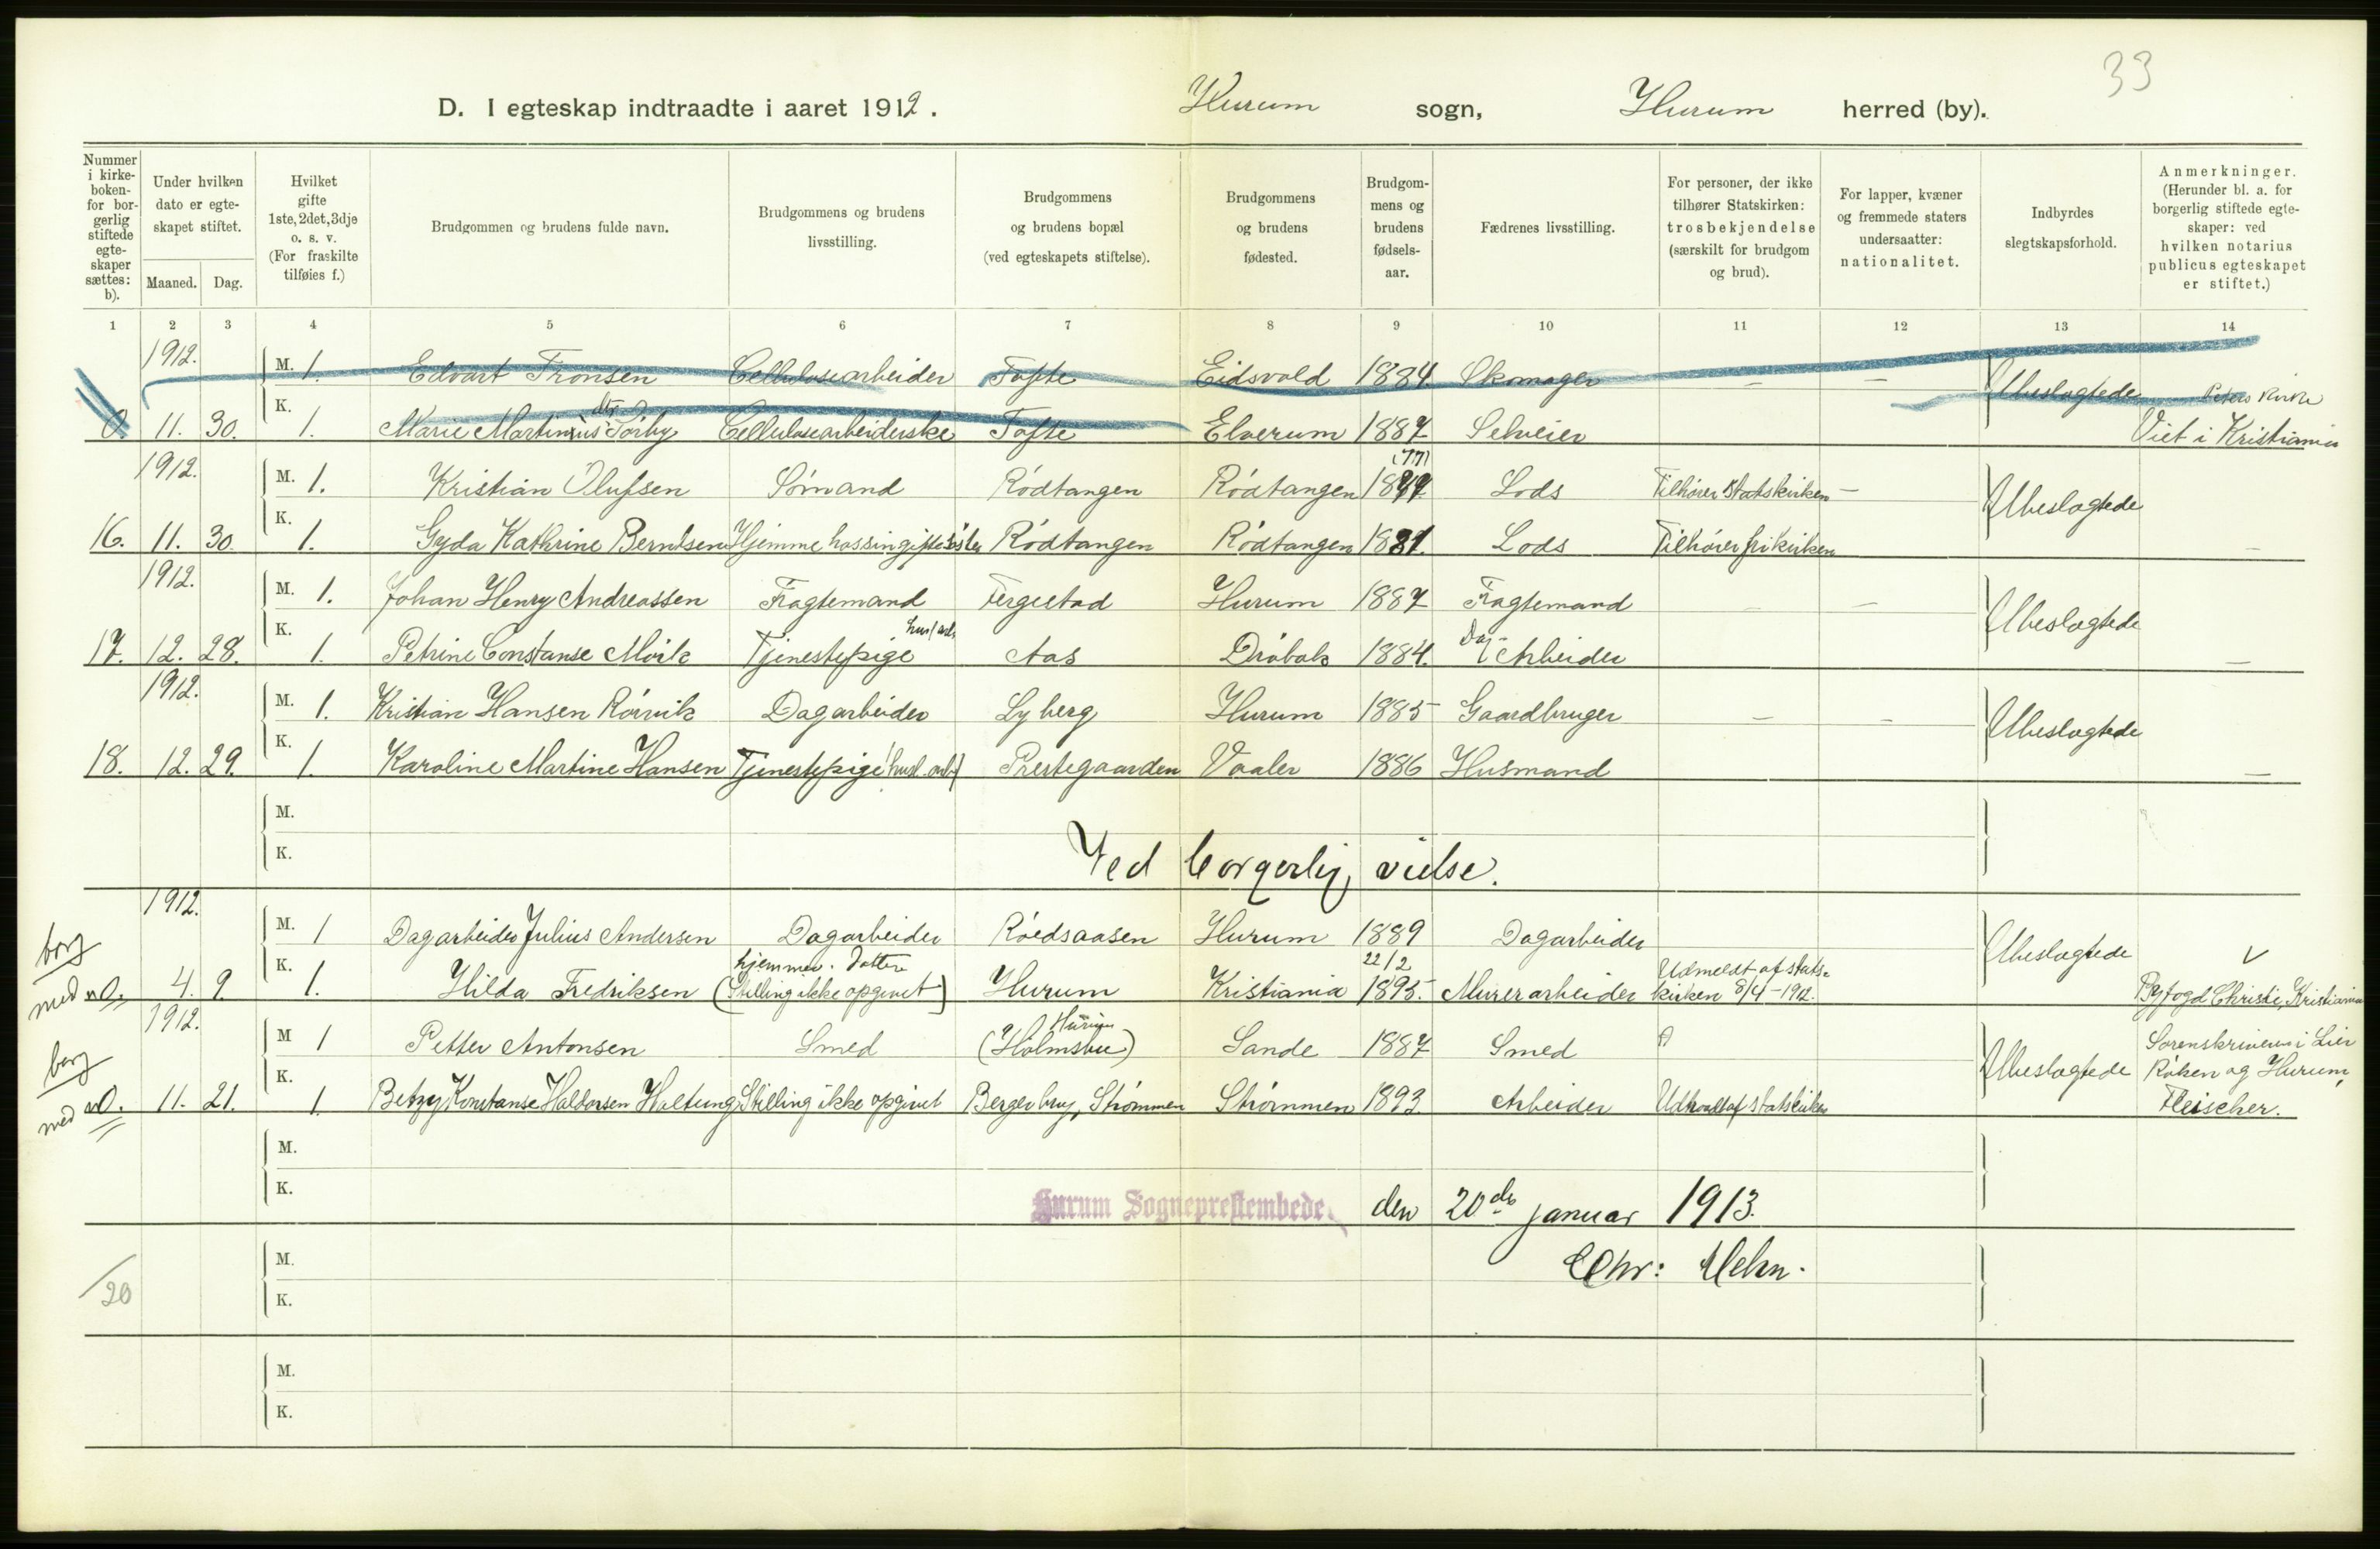 33
D. I egteskap indtraadte i aaret 1912. Hurum sogn, Hurum herred (by).
Nummer i kirke-boken- for bor-gerlig stiftede egte-skaper sættes: b).
Under hvilken dato er egte-skapet stiftet.
Maaned. Dag.
Hvilket gifte 1ste, 2det, 3dje o. s. v. (For fraskilte tilføies f.)
Brudgommen og brudens fulde navn.
Brudgommens og brudens livsstilling.
Brudgommens og brudens bopæl (ved egteskapets stiftelse).
Brudgommens og brudens fødested.
Brudgom-mens og brudens fødsels-aar.
Fædrenes livsstilling.
For personer, der ikke tilhører Statskirken: trosbekjendelse (særskilt for brudgom og brud).
For lapper, kvæner og fremmede staters undersaatter: nationalitet.
Indbyrdes slegtskapsforhold.
Anmerkninger. (Herunder bl. a. for borgerlig stiftede egte-skaper: ved hvilken notarius publicus egteskapet er stiftet.)
1 2 3 4 5 6 7 8 9 10 11 12 13 14
1912. M. 1. Edvart Tronsen Cellulosearbeider Tofte Eidsvold 1884. Skomager – – Ubeslegtede Peters Kirke
0 11. 30. K. 1. Marie Martinius dtr Torby Cellulosearbeiderske Tofte Elverum 1887 Selveier Viet i Kristiania
1912. M. 1. Kristian Olufsen Sömand Rödtangen Rödtangen 1877 (77) Lods Tilhører Statskirken – Ubeslegtede
16. 11. 30. K. 1. Gyda Kathrine Berntsen Hjemme hos sin gifte söster Rödtangen Rödtangen 1881. Lods Tilhører frikirken –
1912. M. 1. Johan Henry Andreassen Fragtemand Fergestad Hurum 1887 Fragtemand – – Ubeslegtede
17. 12. 28. K. 1. Petrine Constanse Mörk Tjenestepige husl. arb. Aas Dröbak 1884. Dag-Arbeider –
1912. M. 1. Kristian Hansen Rörvik Dagarbeider Lyberg Hurum 1885 Gaardbruger – – Ubeslegtede
18. 12. 29. K. 1. Karoline Martine Hansen Tjenestepige (husl. arb) Prestegaarden Vaaler 1886 Husmand –
M.
K. Ved borgerlig vielse.
1912. M. 1 Dagarbeider Julius Andersen Dagarbeider Röedsaasen Hurum 1889 Dagarbeider Ubeslegtede
borg med no. 4. 9. K. 1. Hilda Fredriksen hjemmev. Datter (Stilling ikke opgivet) Hurum Kristiania 22/2 1895. Murerarbeider Udmeldt af stats-kirken 8/4-1912. Byfogd Christie, Kristiania
1912. M 1 Petter Antonsen Smed (Holmsbu) Hurum Sande 1887 Smed Ubeslegtede Sorenskriveren i Lier
borg med no. 11. 21. K. 1. Betzy Konstanse Haldorsen Holtung Stilling ikke opgivet Bergerbryg, Strömmen Strömmen 1893 Arbeider Udtraadt af statskirken Röken og Hurum, Fleischer.
M.
K. Hurum Sogneprestembede. den 20de januar 1913.
M. Chr: Mehn.
/20 K.
M.
K.